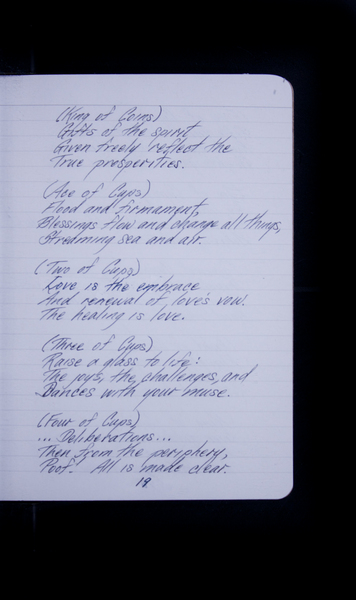 (King of Coins)
Gifts of the spirit
Given freely reflect the
True prosperities.
(Ace of Cups)
Flood and firmament,
Blessings flow and change all things,
Streaming sea and air.
(Two of Cups)
Love is the embrace
And renewal of love's vow.
The healing is love.
(Three of Cups)
Raise a glass to life:
The joys, the challenges, and
Dances with your muse.
(Four of Cups)
... Deliberations...
Then from the periphery,
Poof! All is made clear.
19